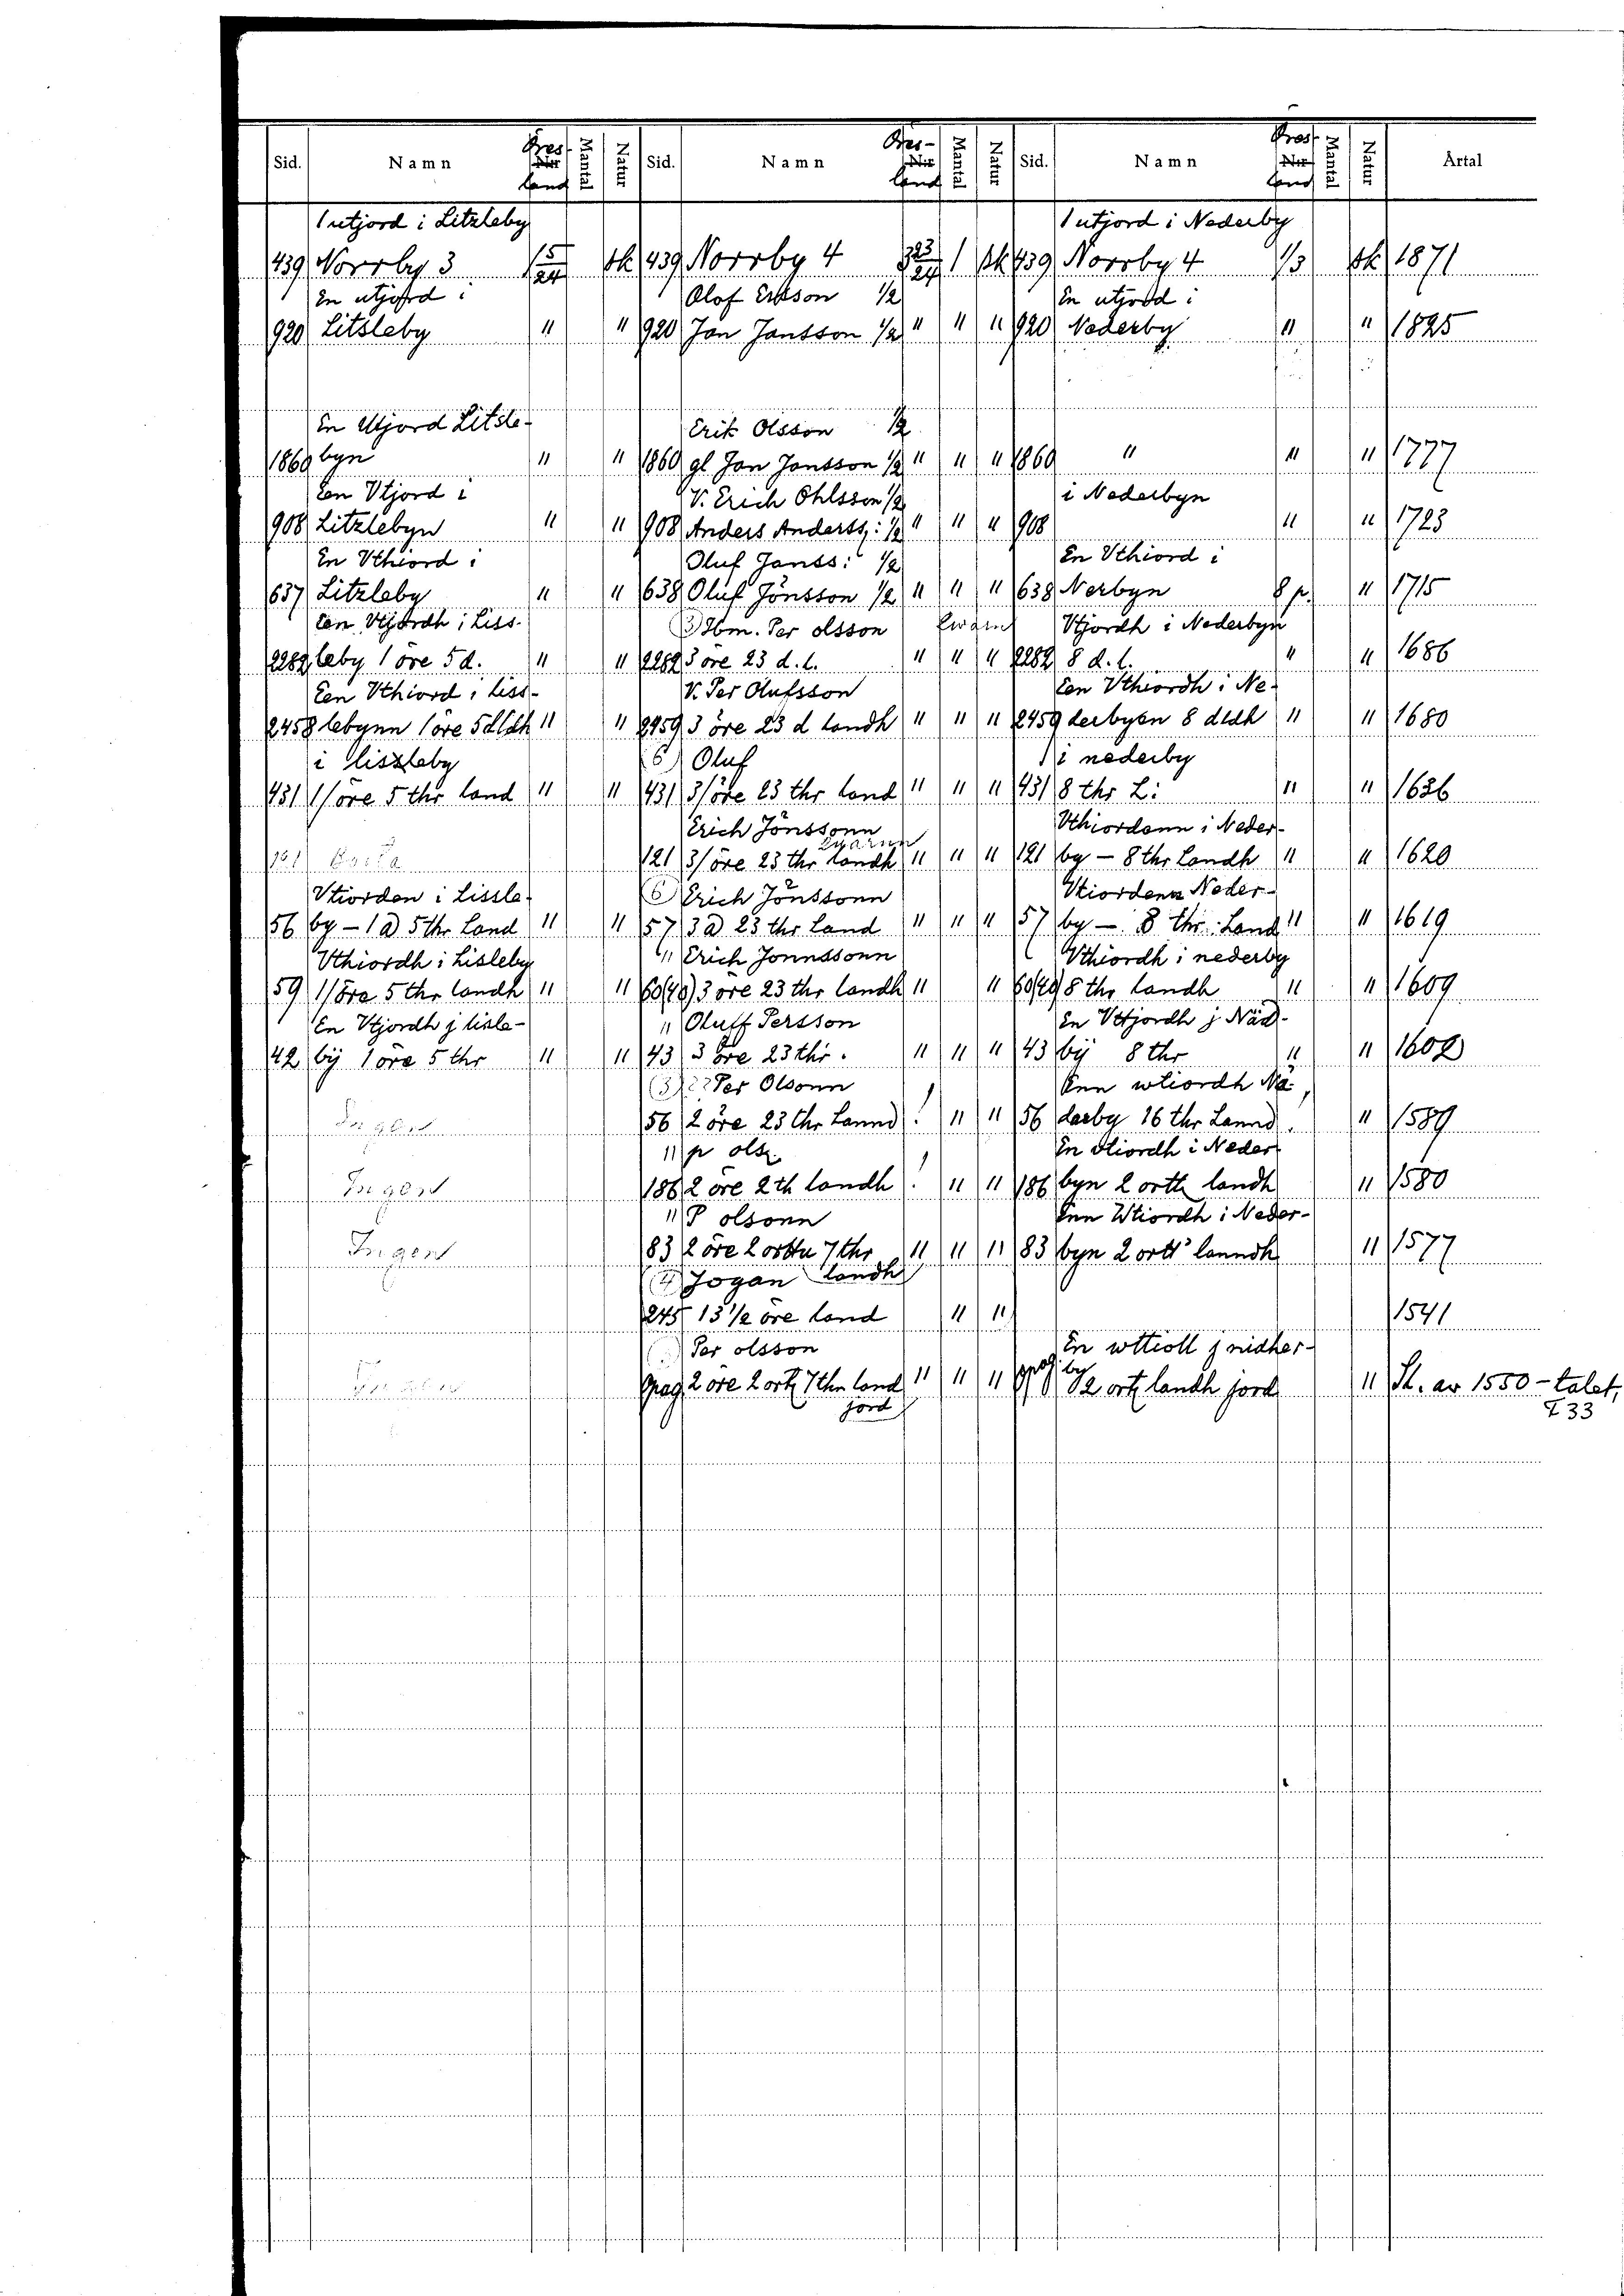 Sid. Namn Öres- land Mantal Natur Sid. Namn Öres- land Mantal Natur Sid. Namn Öres- land Mantal Natur Årtal
1 utjord i Litzleby 1 utjord i Nederby
439 Norrby 3 1 5/24 sk 439 Norrby 4 3 23/24 1 sk 439 Norrby 4 1/3 sk 1871
En utjord i Olof Ersson 1/2 En utjord i
920 Litsleby " " 920 Jan Jansson 1/2 " " " 920 Nederby " " 1825
En Utjord Litsle- Erik Olsson 1/2
1869 byn " " 1860 gl Jan Jansson 1/2 " " " 1860 " " " 1777
Een Vtjord i V. Erich Ohlsson 1/2 i Nederbyn
908 Litzlebyn " " 908 Anders Anderss: 1/2 " " " 908 " " 1723
En Vthiord i Oluf Janss: 1/2 En Vthiord i
637 Litzleby " " 638 Oluf Jönsson 1/2 " " " 638 Nerbyn 8 p. " 1715
Een Vtjordh i Liss- (3) Hbm. Per olsson Vtjordh i Nederbyn
2282 leby 1 öre 5 d. " " 2282 3 öre 23 d. l. " " " 2282 8 d. l. " " 1686
Een Vthiord i Liss- V. Per Olufsson Een Vthiordh i Ne-
2458 lebynn 1 öre 5 dldh " " 2459 3 öre 23 d landh " " " 2459 derbyen 8 dldh " " 1680
i liszleby (6) Oluf i nederby
431 1/öre 5 thr land " " 431 3/öre 23 thr land " " " 431 8 thr L: " " 1636
Erich Jönssonn Vthiordenn i Neder-
121 3/öre 23 thr landh " " " 121 by - 8 thr Landh " " 1620
Vtiorden i Lissle- (6) Erich Jönssonn Vtiordenn Neder-
56 by - 1 a 5 thr Land " " 57 3 a 23 thr Land " " " 57 by - 8 thr Land " " 1619
Vthiordh i Lisleby " Erich Jonnssonn Vthiordh i nederby
59 1/öre 5 thr landh " " 60(49) 3 öre 23 thr landh " " 60(49) 8 thr landh " " 1609
En Vtjordh j lisle- " Oluff Persson En Vtjordh j Näd-
42 bÿ 1 öre 5 thr " " 43 3 öre 23 thr. " " " 43 bÿ 8 thr " " 1602
(3) Per Olsonn Enn wtiordh Nä-
Ingen 56 2 öre 23 thr Lannd ! " " 56 derby 16 thr Lannd " 1589
" p ols. En vtiordh i Neder-
Ingen 186 2 öre 2 th landh ! " " 186 byn 2 orth landh " 1580
" P olsonn Enn Wtiordh i Neder-
Ingen 83 2 öre 2 7 thr " " " 83 byn 2 ortt lanndh " 1577
Jogan landh
245 13 1/2 öre land " " 1541
Per olsson En wttioll j nidher-
Opag. 2 öre 2 ort 7 thn land " " " opag by 2 ort landh jord " Sk. av 1550-talet,
jord F 33